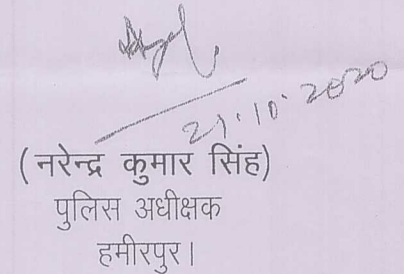 21.10.2020
(नरेन्द्र कुमार सिंह)
पुलिस अधीक्षक
हमीरपुर।